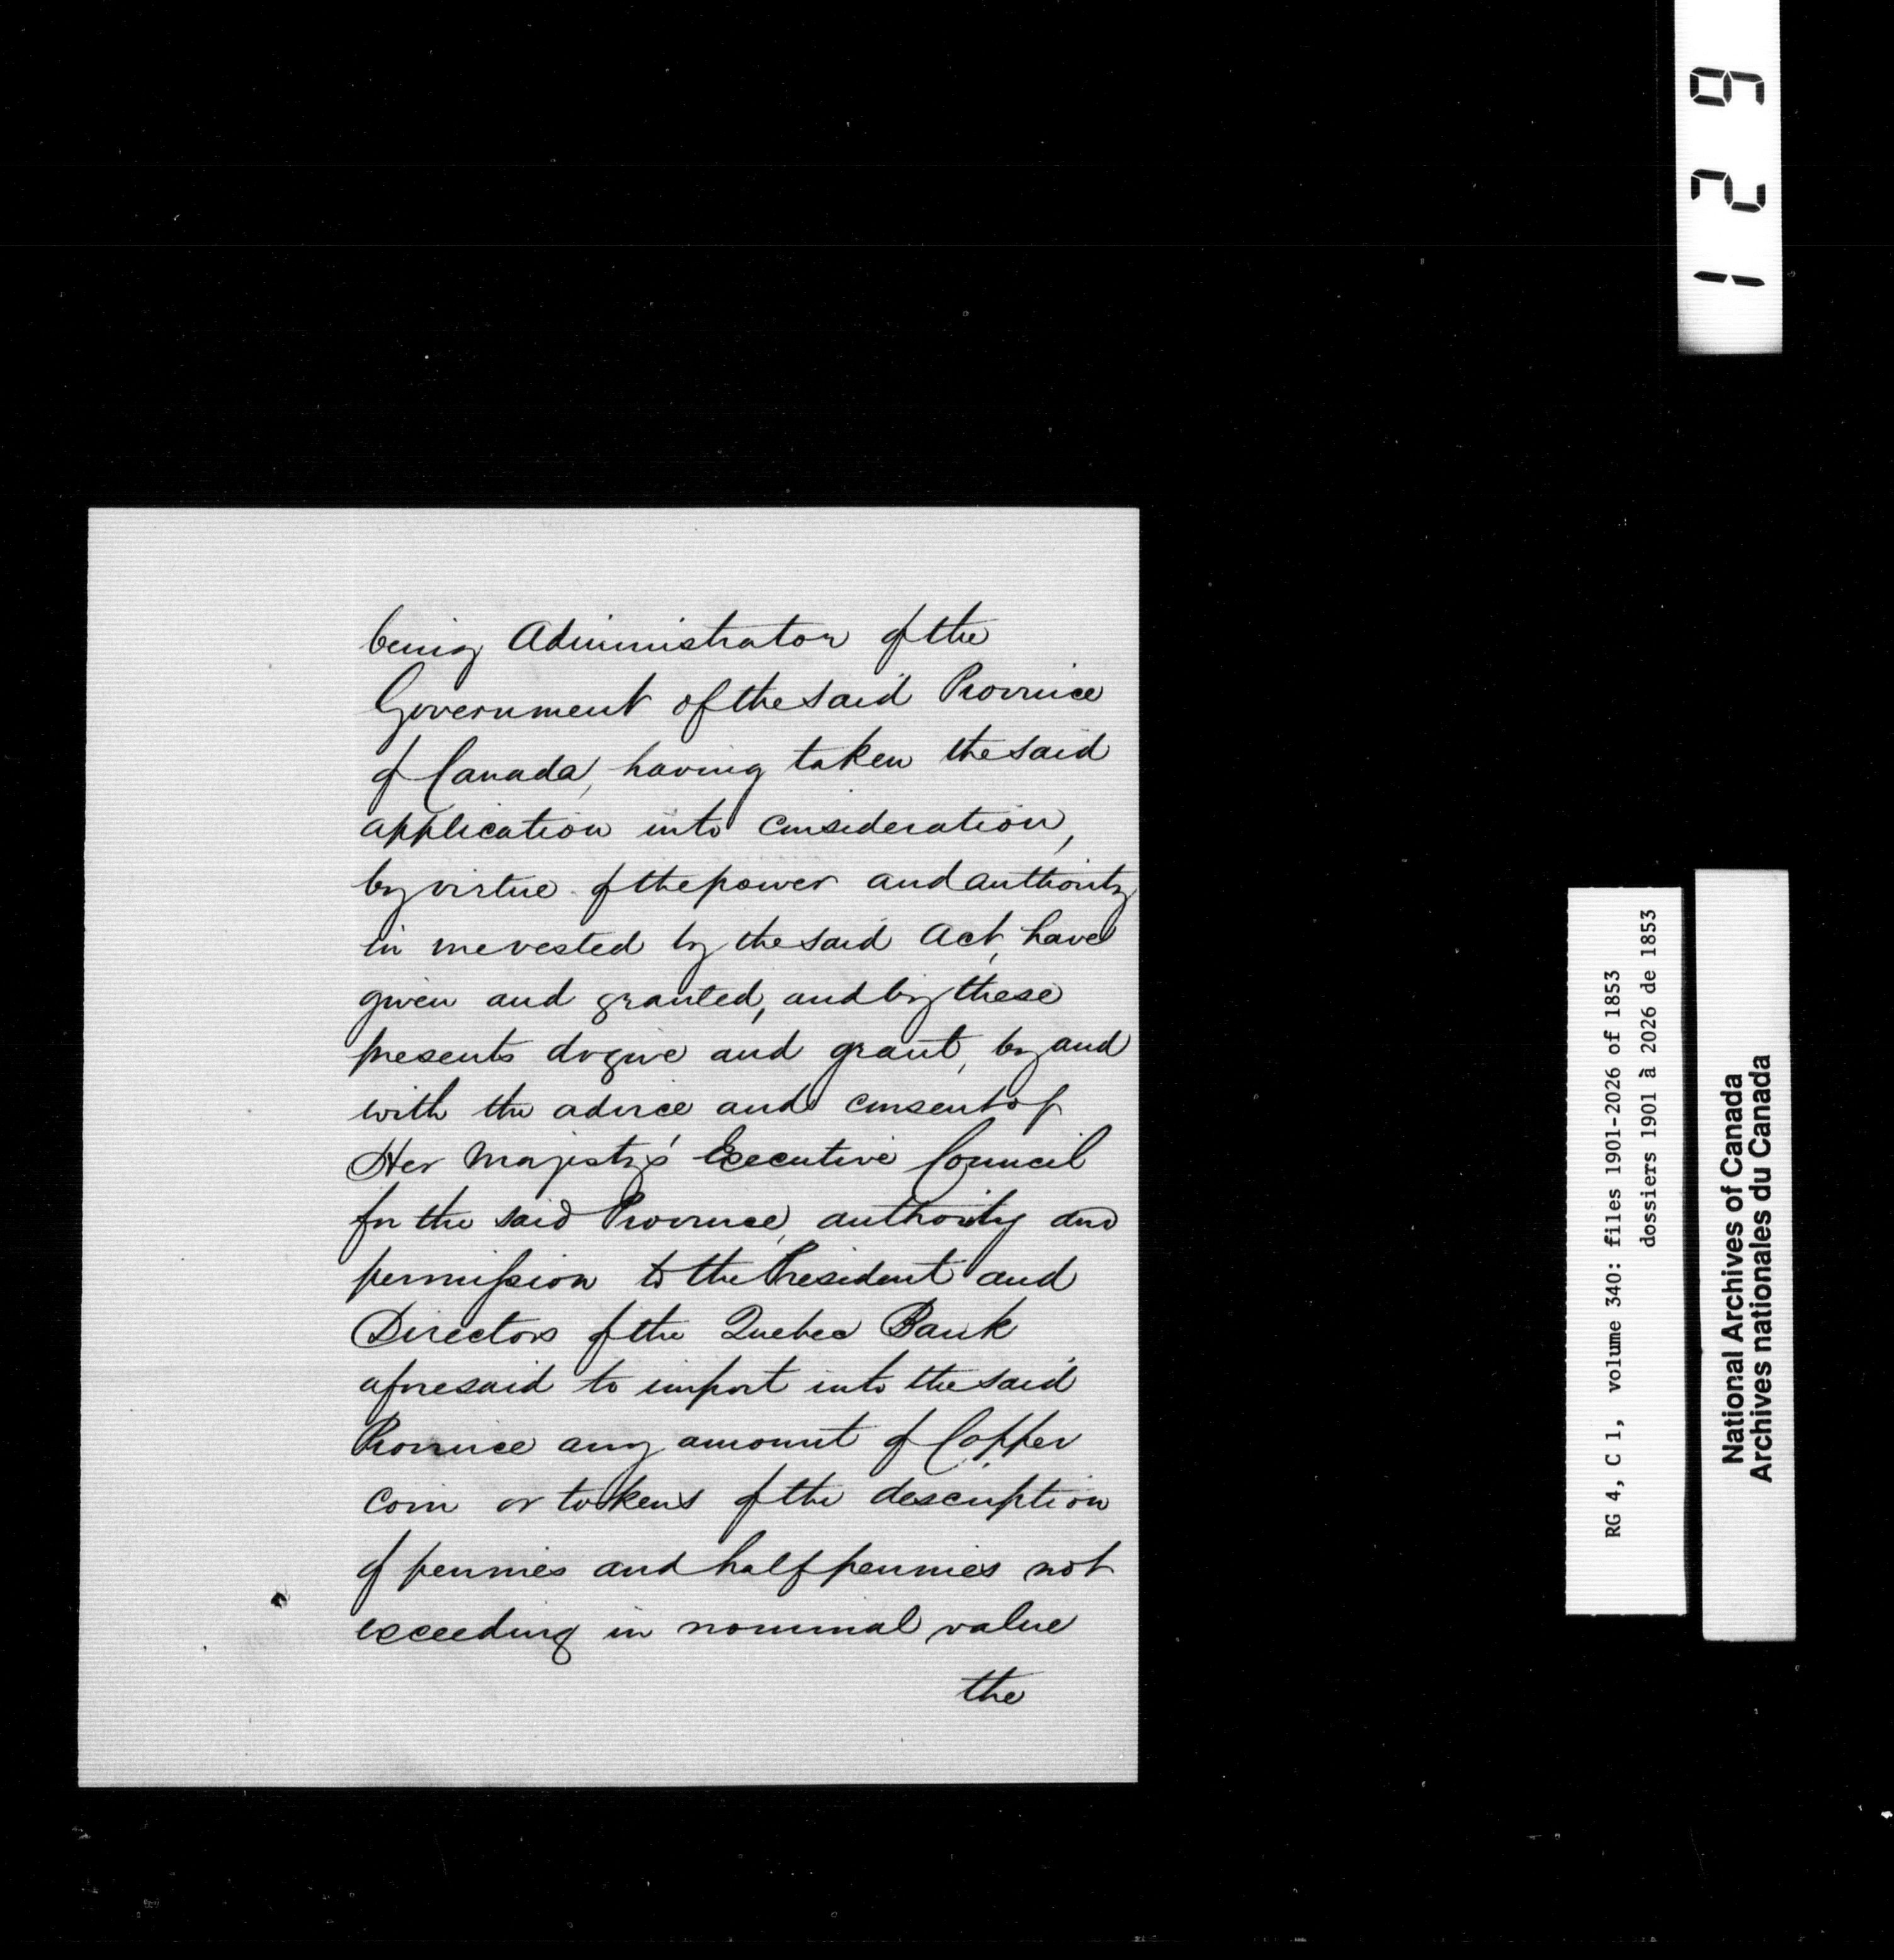 being Administrator of the
Government of the said Province
of Canada, having taken the said
application into consideration,
by virtue of the power and authority
in me vested by the said Act, have
given and granted, and by these
presents do give and grant, by and
with the advice and consent of
Her Majesty's Executive Council
for the said Province, authority and
permission to the President and
Directors of the Quebec Bank
aforesaid to import into the said
Province any amount of Copper
Coin or tokens of the description
of pennies and half pennies not
exceeding in nominal value
the
129
RG 4, C 1, volume 340: files 1901-2026 of 1853
dossiers 1901 à 2026 de 1853
National Archives of Canada
Archives nationales du Canada